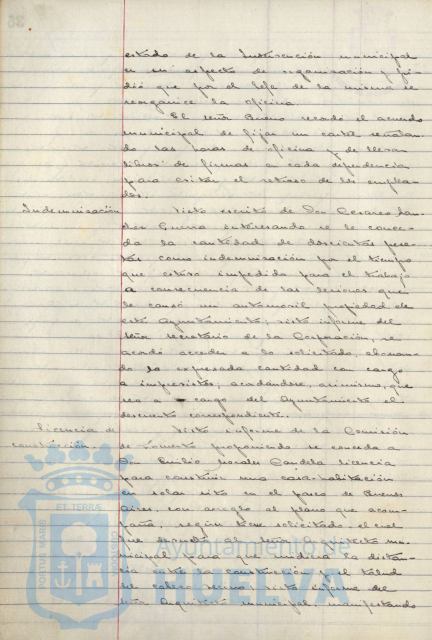 estado de la Intervención municipal
en su aspecto de organización y pi-
dió que por el Jefe de la misma se
reorganice la oficina.
El señor Bueno recordó el acuerdo
municipal de fijar un cartel señalan-
do las horas de oficina y de llevar
libros de firmas a cada dependencia
para evitar el retraso de los emplea-
dos.
Indemnización Visto escrito de Don Cesareo
Guerra interesando se le conce-
da la cantidad de doscientas pese-
tas como indemnización por el tiempo
que estuvo impedido para el trabajo
a consecuencia de las lesiones que
le causó un automovil propiedad de
este Ayuntamiento; visto informe del
señor Secretario de la Corporación, se
acordó acceder a lo solicitado, abonan-
do la expresada cantidad con cargo
a imprevistos; acordandose, asimismo, que
sea a cargo del Ayuntamiento el
descuento correspondiente.
Licencia de Visto informe de la Comisión
construcción. de Fomento proponiendo se conceda a
Don Emilio Morales Candela licencia
para construir una casa-habitación
en solar sito en el paseo de Buenos
Aires, con arreglo al plano que acom-
paña, según tiene solicitado, el cual
que señor arquitecto mu-
nicipal para que indicara la distan-
cia entre la construcción y el talud
del cabezo visto informe del
señor Arquitecto municipal, manifestando
PORTUS MARIS ET TERRÆ
Ayuntamiento de
HUELVA